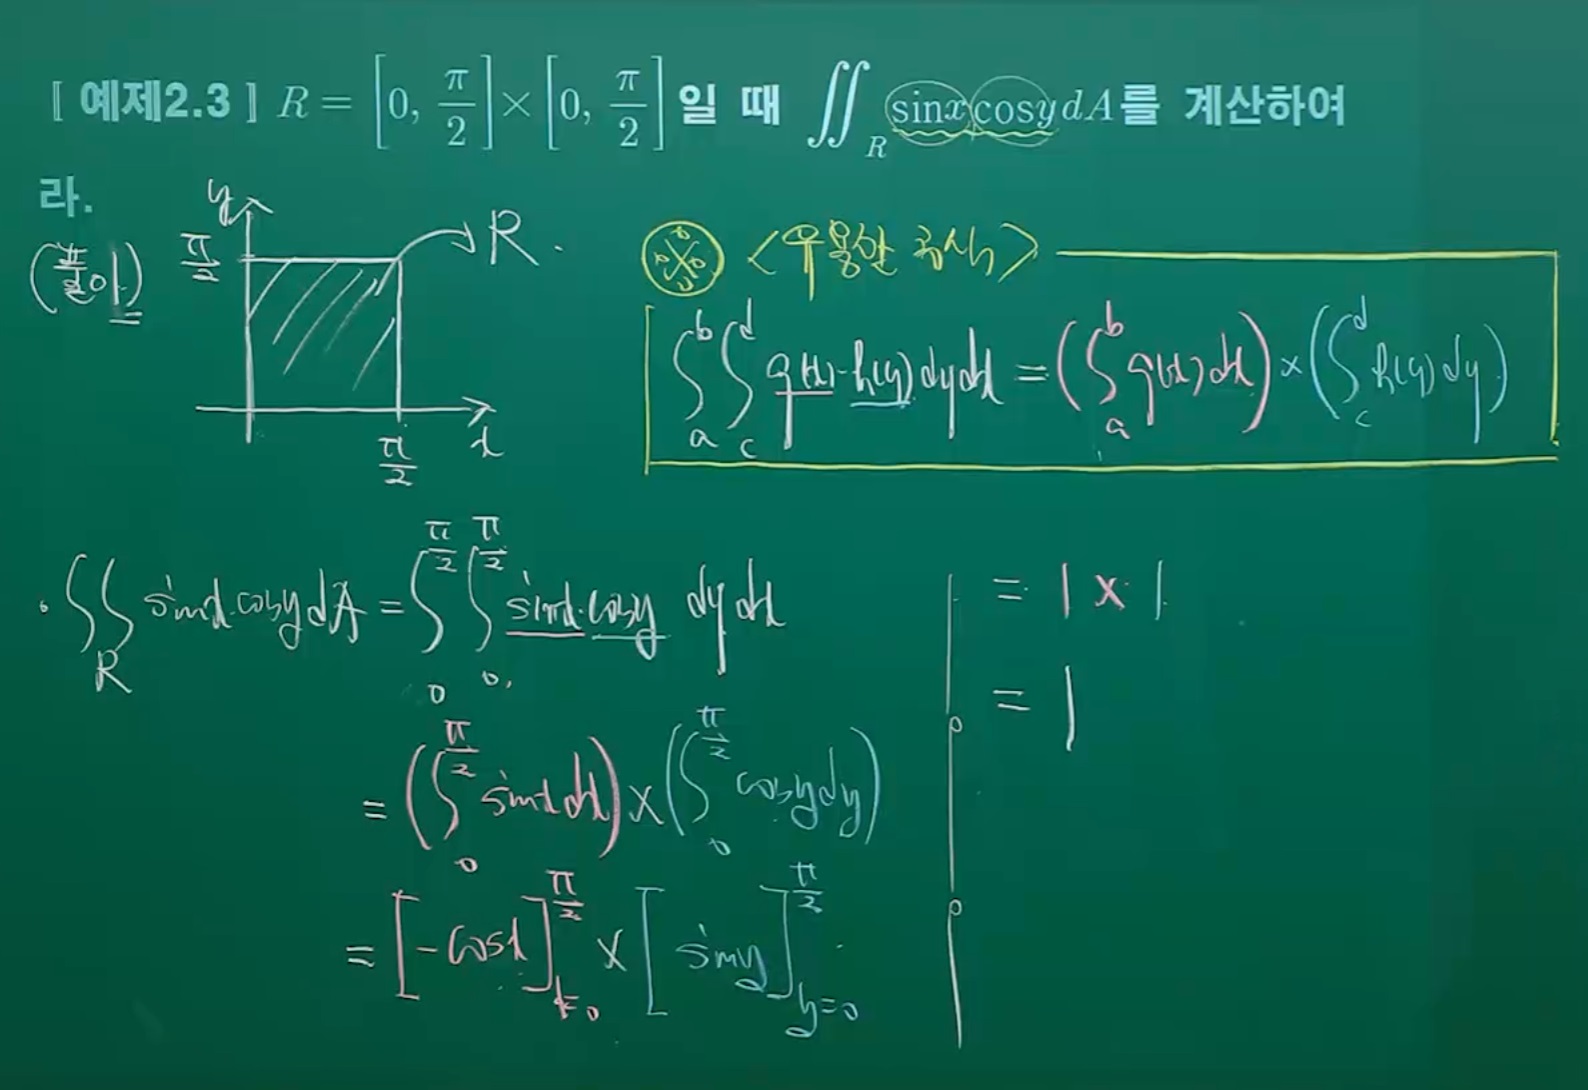 [ 예제2.3 ] R = [0, π/2] × [0, π/2] 일 때 ∬_R sinx cosy dA를 계산하여
라.
(풀이)
y
π/2
R.
π/2
x
<유용한 공식>
∫_a^b ∫_c^d g(x)·h(y) dy dx = (∫_a^b g(x) dx) × (∫_c^d h(y) dy)
∬_R sinx·cosy dA = ∫_0^{π/2} ∫_0^{π/2} sinx·cosy dy dx
= (∫_0^{π/2} sinx dx) × (∫_0^{π/2} cosy dy)
= [-cosx]_{x=0}^{π/2} × [siny]_{y=0}^{π/2}
= 1 × 1
= 1